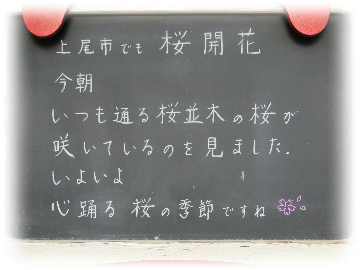 上尾市でも 桜開花
今朝
いつも通る桜並木の桜が
咲いているのを見ました.
いよいよ
心踊る 桜の季節ですね